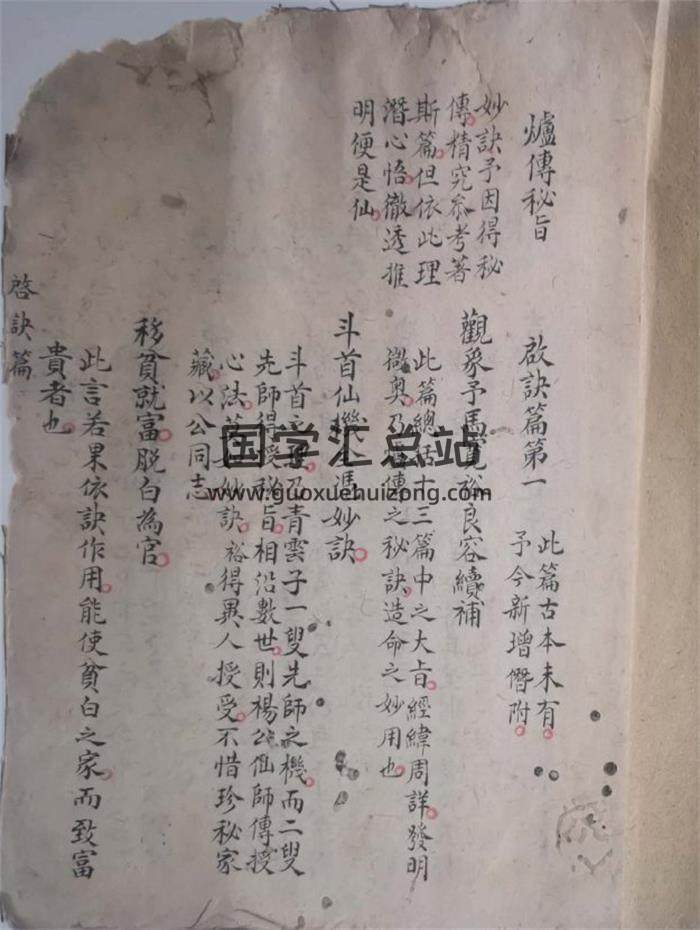 爐傳秘旨
妙訣予因得秘
傳精究叅考著
斯篇但依此理
潛心悟徹透推
明便是仙
啟訣篇第一
此篇古本未有
予今新增僭附
觀象予馬裕良容續補
此篇總括十三篇中之大旨經緯周詳發明
微奧乃傳之秘訣造命之妙用也
斗首仙機全憑妙訣
斗首之理乃青雲子一叟先師之機而二叟
先師得受秘旨相沿數世則楊公仙師傳授
心法妙訣裕得異人授受不惜珍秘家
藏以公同志
移貧就富脫白為官
此言若果依訣作用能使貧白之家而致富
貴者也
啓訣篇
国学汇总站
www.guoxuehuizong.com